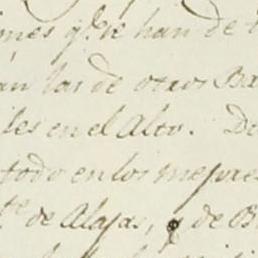 nes q.e se han de
an las de otros B
les en el Alto. D
todo en los mejores
te de Alajas, y de B